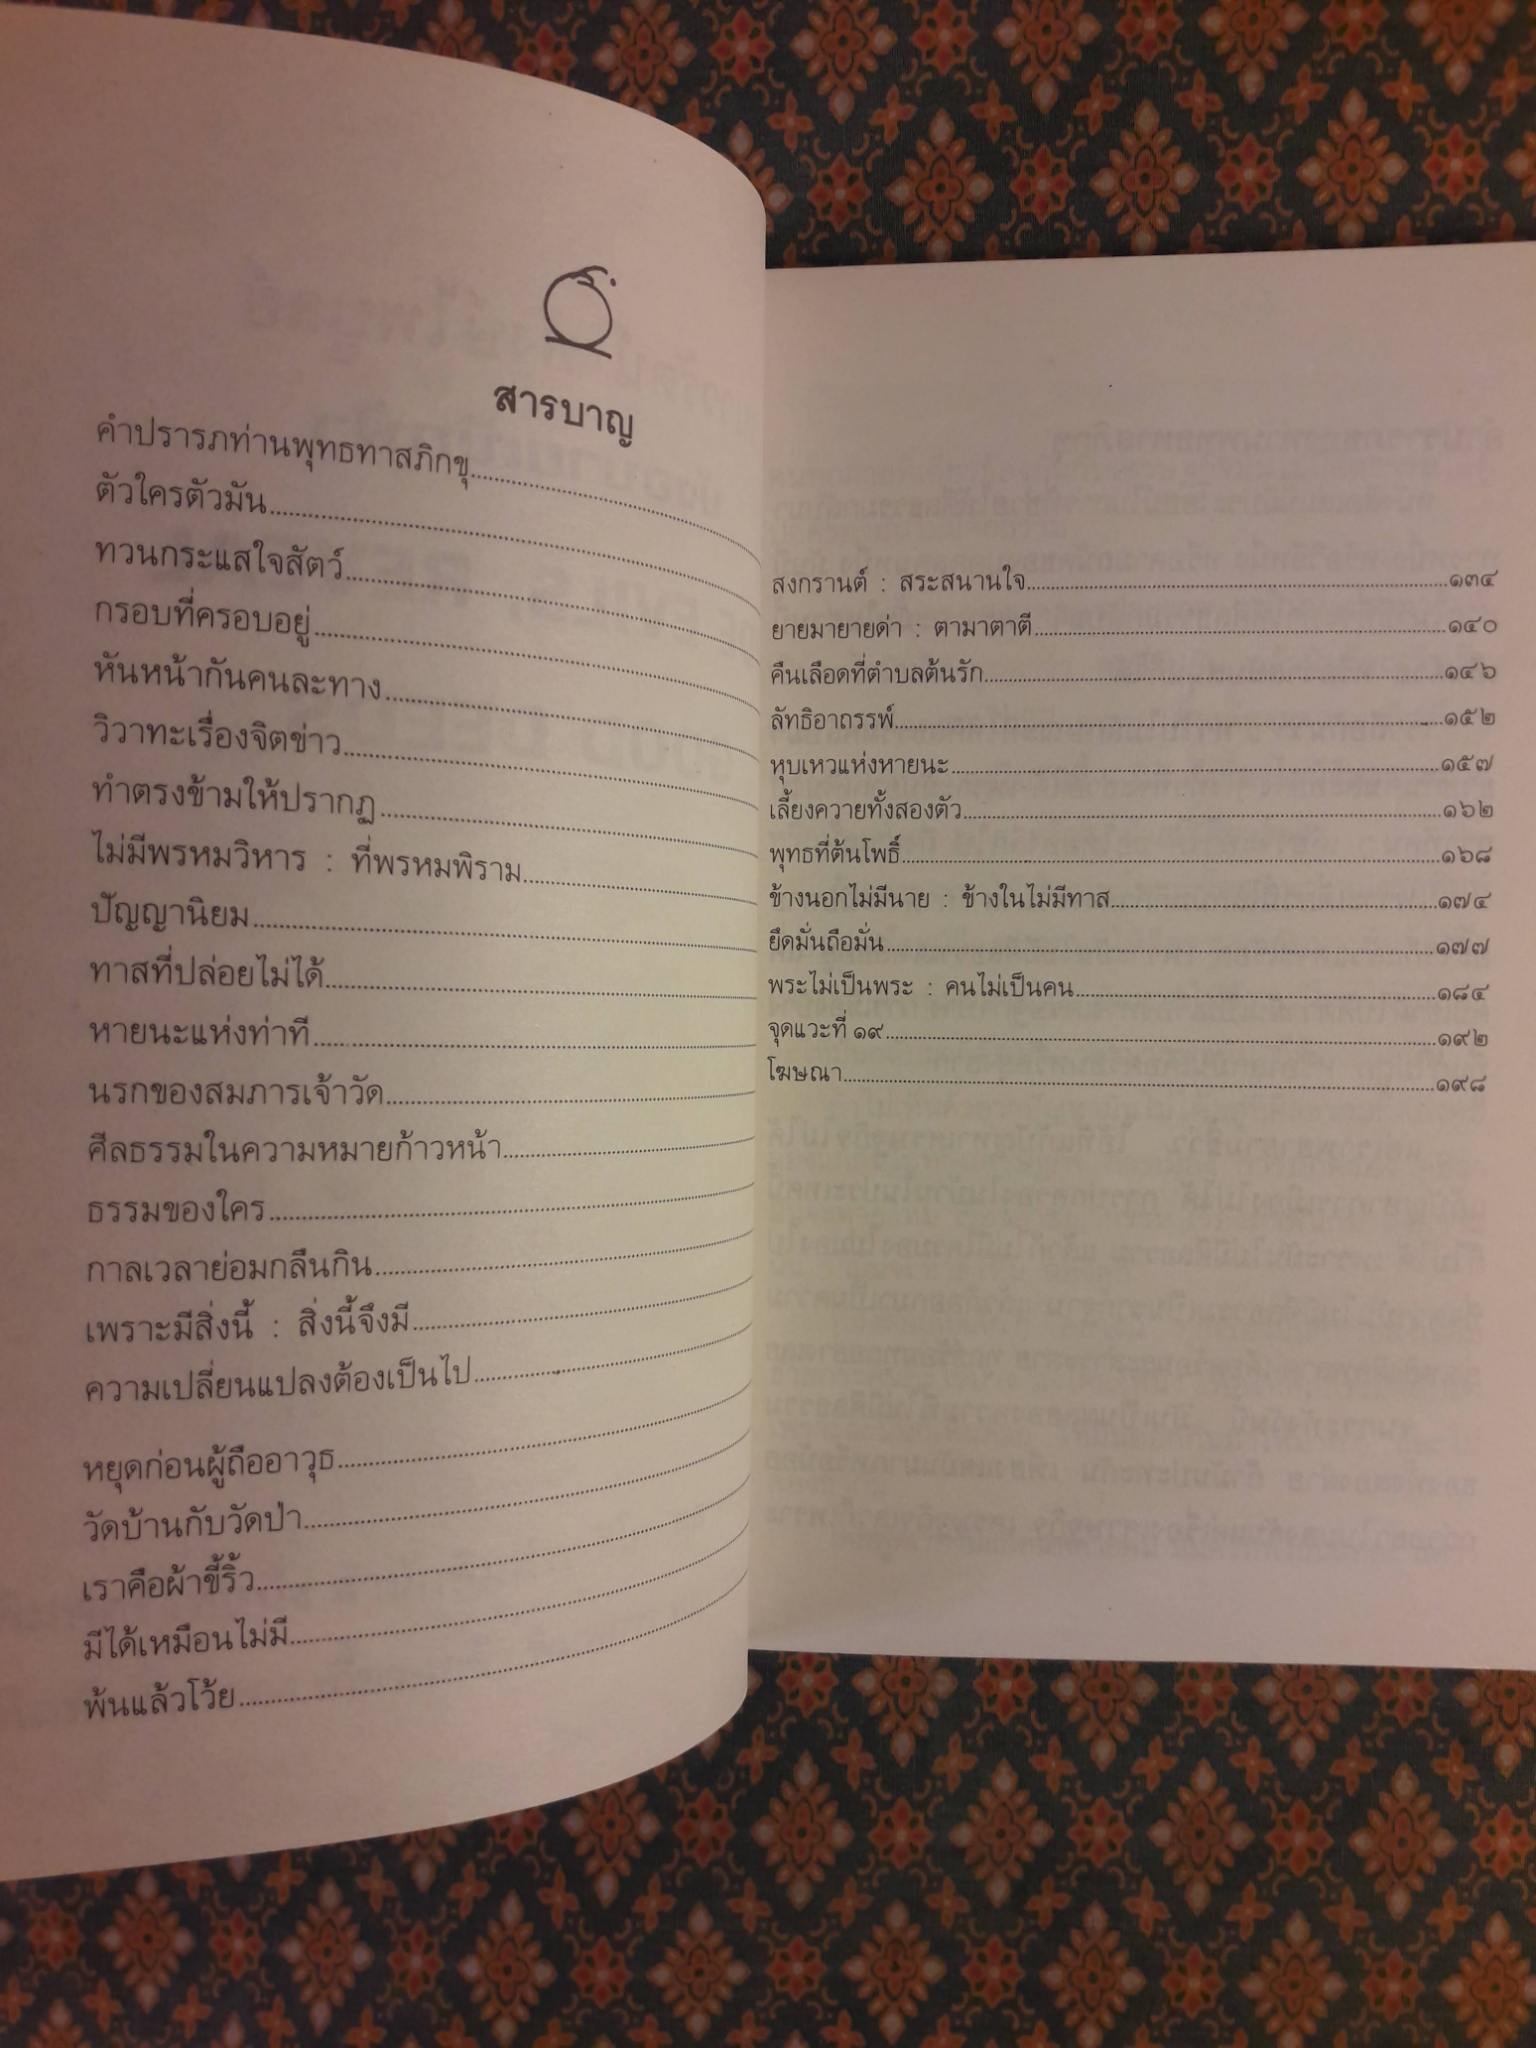 สารบาญ
คำปรารภท่านพุทธทาสภิกขุ
ตัวใครตัวมัน
ทวนกระแสใจสัตว์
กรอบที่ครอบอยู่
หันหน้ากันคนละทาง
วิวาทะเรื่องจิตข่าว
ทำตรงข้ามให้ปรากฏ
ไม่มีพรหมวิหาร : ที่พรหมพิราม
ปัญญานิยม
ทาสที่ปล่อยไม่ได้
หายนะแห่งท่าที
นรกของสมภารเจ้าวัด
ศีลธรรมในความหมายก้าวหน้า
ธรรมของใคร
กาลเวลาย่อมกลืนกิน
เพราะมีสิ่งนี้ : สิ่งนี้จึงมี
ความเปลี่ยนแปลงต้องเป็นไป
หยุดก่อนผู้ถืออาวุธ
วัดบ้านกับวัดป่า
เราคือผ้าขี้ริ้ว
มีได้เหมือนไม่มี
พ้นแล้วโว้ย
สงกรานต์ : สระสนานใจ ๑๓๔
ยายมายายด่า : ตามาตาตี ๑๔๐
คืนเลือดที่ตำบลต้นรัก ๑๔๖
ลัทธิอาถรรพ์ ๑๕๒
หุบเหวแห่งหายนะ ๑๕๗
เลี้ยงควายทั้งสองตัว ๑๖๒
พุทธที่ต้นโพธิ์ ๑๖๘
ข้างนอกไม่มีนาย : ข้างในไม่มีทาส ๑๗๔
ยึดมั่นถือมั่น ๑๗๗
พระไม่เป็นพระ : คนไม่เป็นคน ๑๘๔
จุดแวะที่ ๑๙ ๑๙๒
โฆษณา ๑๙๘